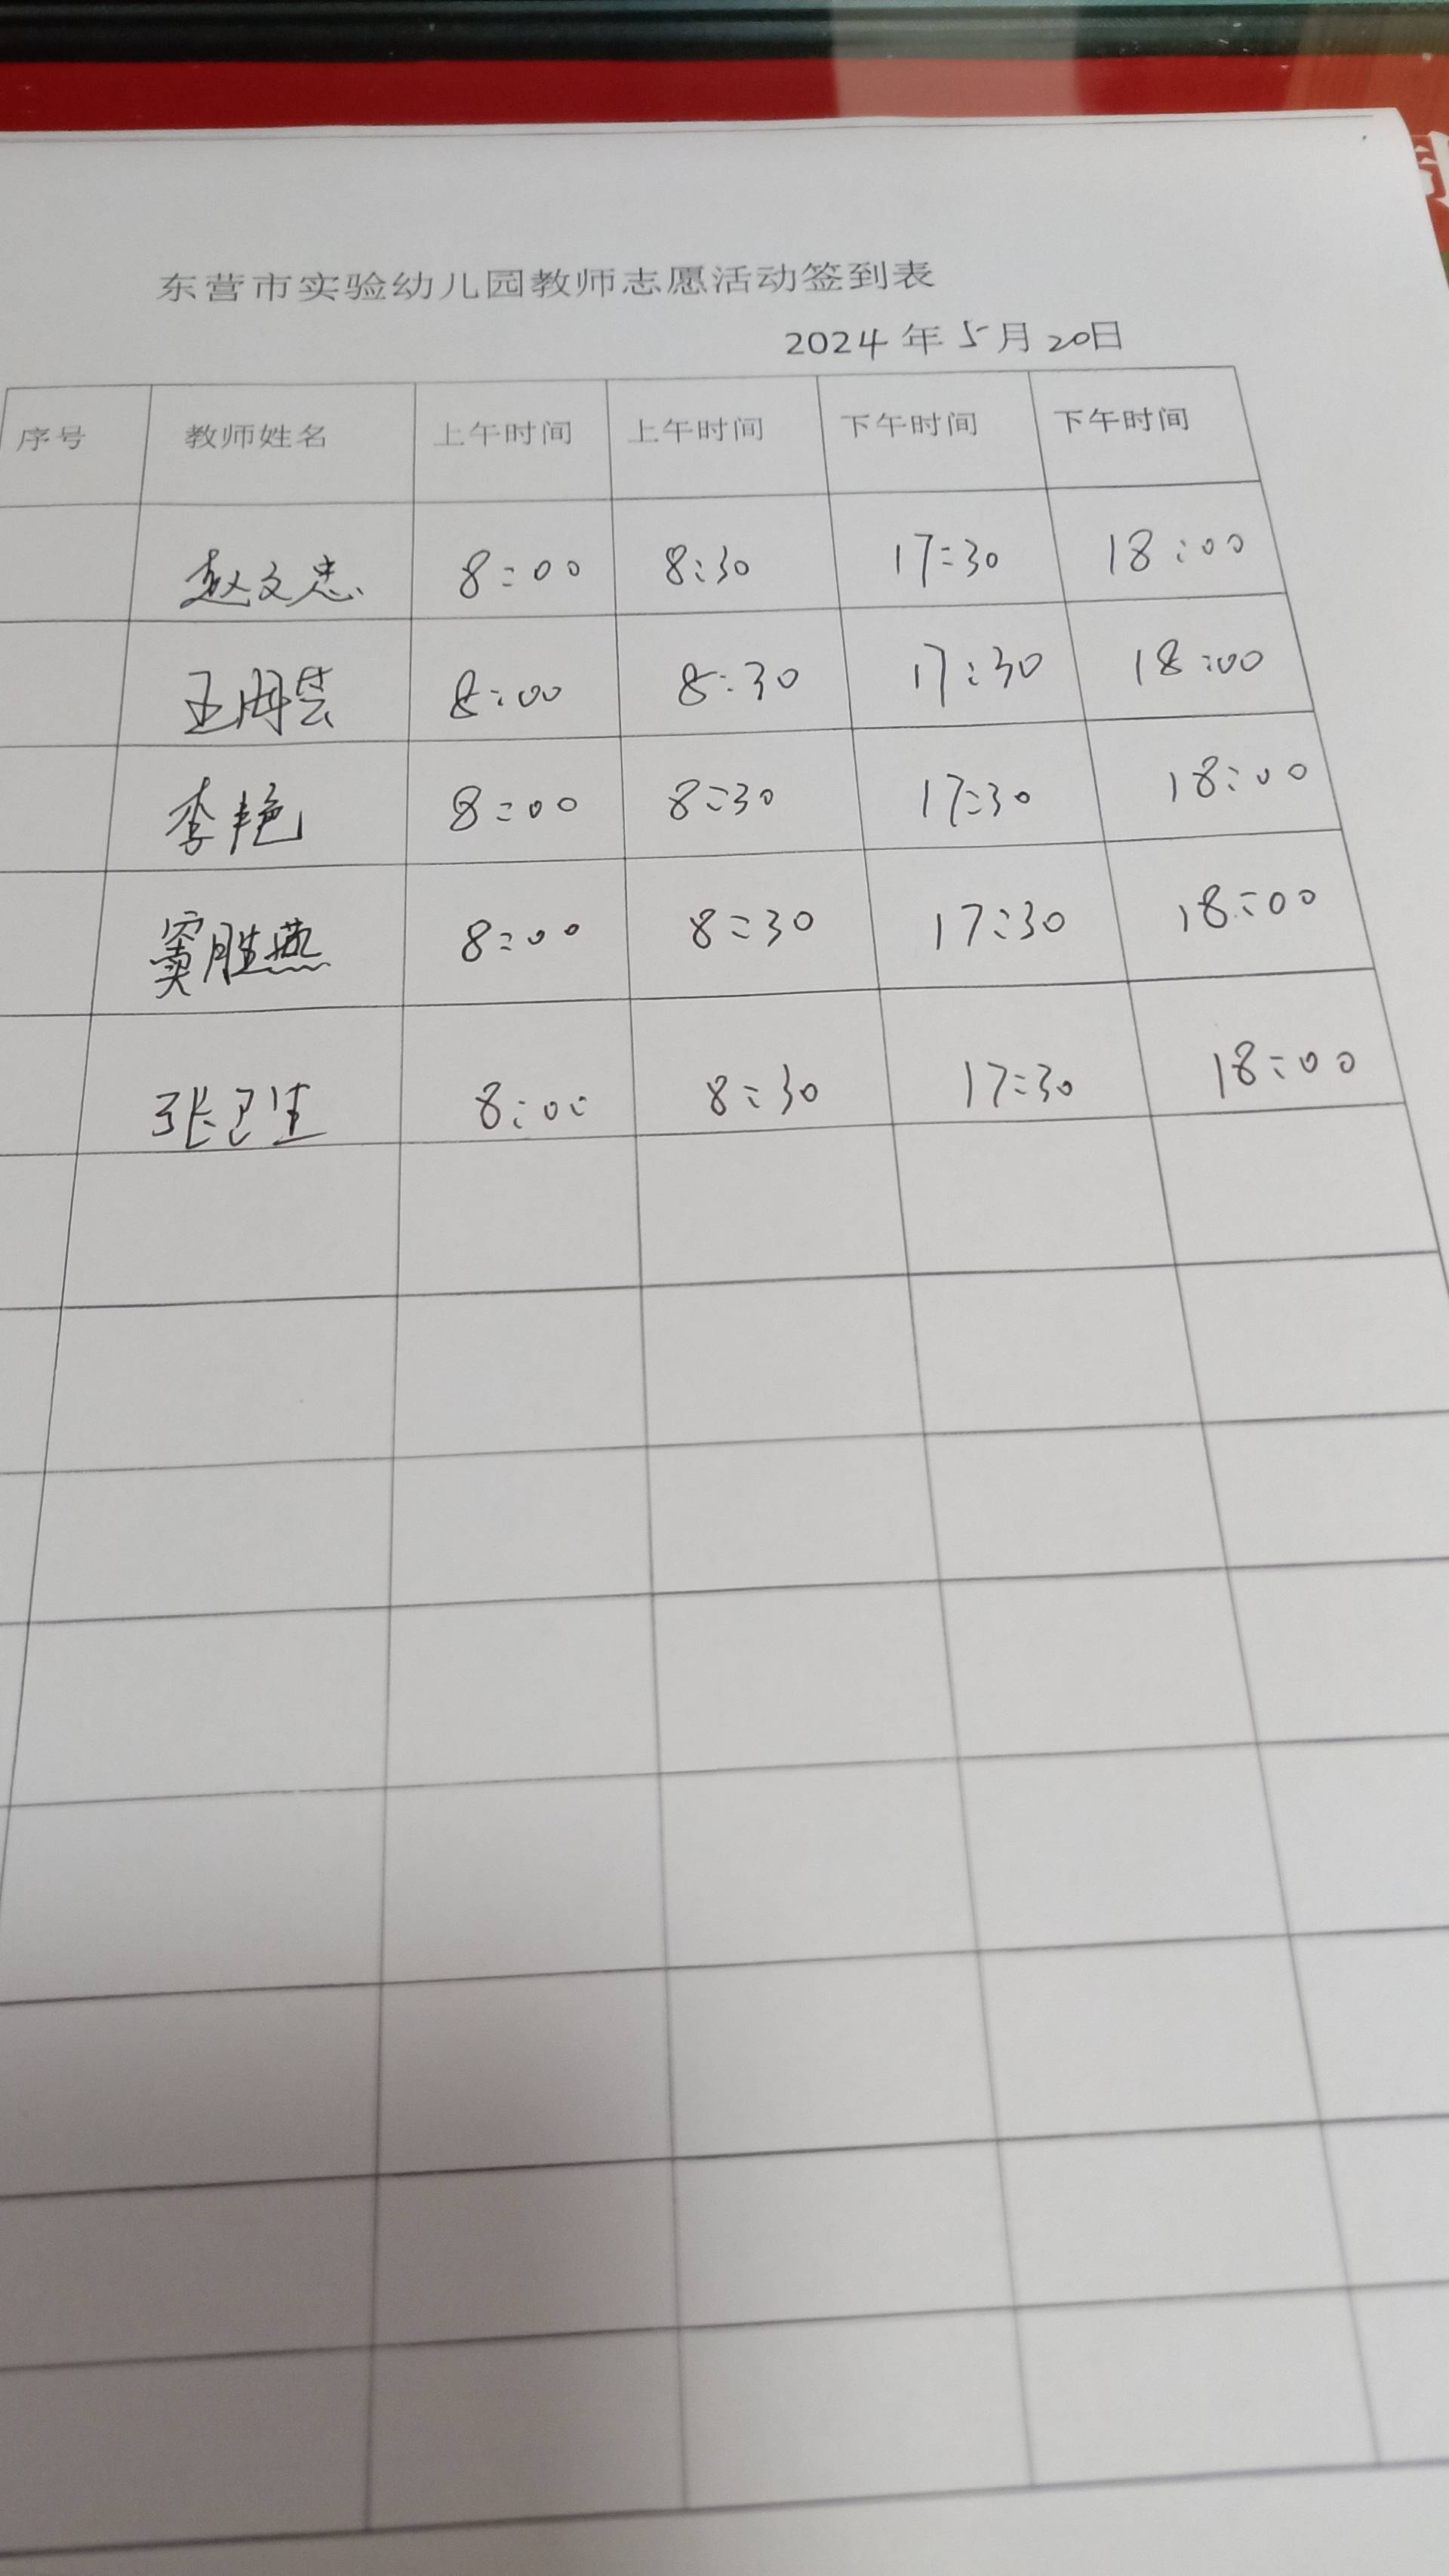 东营市实验幼儿园教师志愿活动签到表
2024年5月20日
序号 教师姓名 上午时间 上午时间 下午时间 下午时间
赵文忠 8:00 8:30 17:30 18:00
王海芸 8:00 8:30 17:30 18:00
李艳 8:00 8:30 17:30 18:00
窦胜燕 8:00 8:30 17:30 18:00
张卫生 8:00 8:30 17:30 18:00